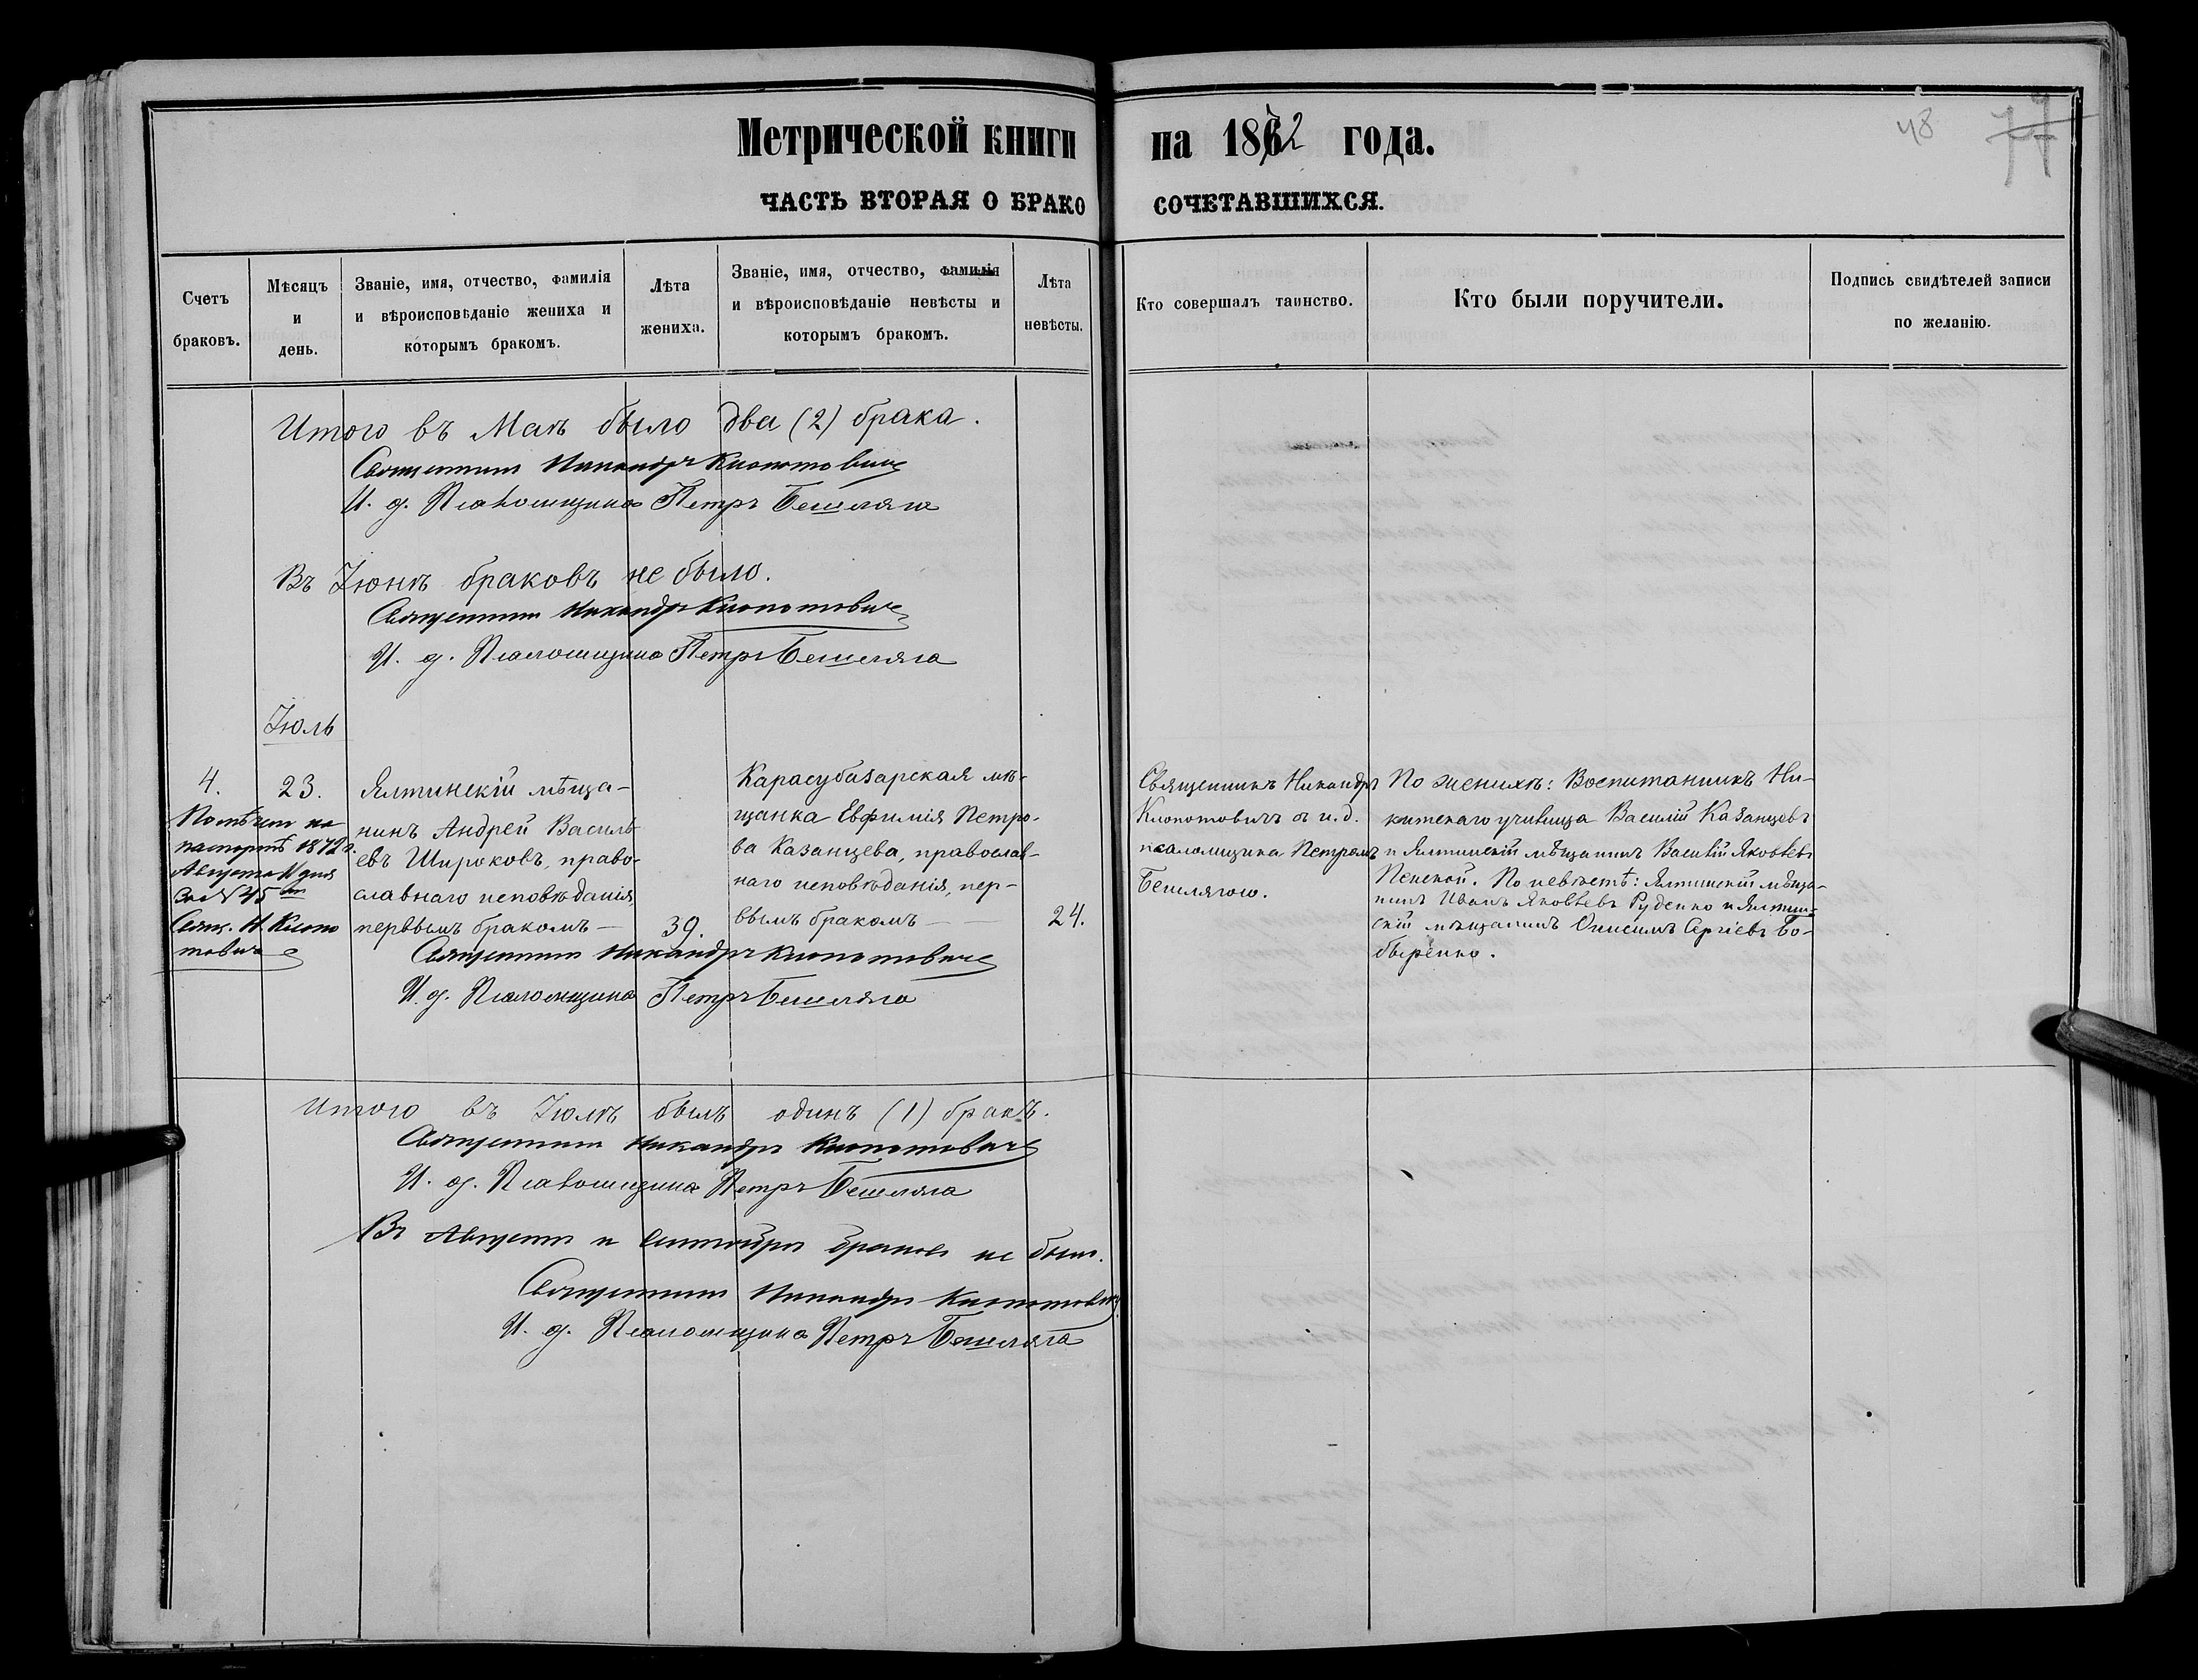 Метрической книги на 1872 года.
48 77
ЧАСТЬ ВТОРАЯ О БРАКО СОЧЕТАВШИХСЯ.
Счетъ браковъ.
Мѣсяцъ и день.
Званіе, имя, отчество, фамилія и вѣроисповѣданіе жениха и которымъ бракомъ.
Лѣта жениха.
Званіе, имя, отчество, фамилія и вѣроисповѣданіе невѣсты и которымъ бракомъ.
Лѣта невѣсты.
Кто совершалъ таинство.
Кто были поручители.
Подпись свидѣтелей записи по желанію.
Итого въ Маѣ было два (2) брака.
Священникъ Никандръ Клопотовичъ
И. д. Псаломщика Петръ Бешляга
Въ Іюнѣ браковъ не было.
Священникъ Никандръ Клопотовичъ
И. д. Псаломщика Петръ Бешляга
Іюль
4.
Помѣчен на
паспортѣ 1872 г.
Августа 11 дня
за № 45
Свящ. Н. Клопо
товичъ
23.
Ялтинскій мѣща-
нинъ Андрей Василь-
евъ Широковъ, право-
славнаго исповѣданія,
первымъ бракомъ —
39.
Карасубазарская мѣ-
щанка Евфимія Петро-
ва Казанцева, православ-
наго исповѣданія, пер-
вымъ бракомъ —
24.
Священникъ Никандръ
Клопотовичъ съ и. д.
псаломщика Петромъ
Бешлягою.
По женихѣ: Воспитанникъ Ни-
китскаго училища Василій Казанцевъ
и Ялтинскій мѣщанинъ Василій Яковлевъ
По невѣстѣ: Ялтинскій мѣща-
нинъ Иванъ Яковлевъ Руденко и Ялтин-
скій мѣщанинъ Онисимъ Сергіевъ Бо-
быренко.
Священникъ Никандръ Клопотовичъ
И. д. Псаломщика Петръ Бешляга
Итого въ Іюлѣ былъ одинъ (1) бракъ.
Священникъ Никандръ Клопотовичъ
И. д. Псаломщика Петръ Бешляга
Въ Августѣ и Сентябрѣ браковъ не было.
Священникъ Никандръ Клопотовичъ
И. д. Псаломщика Петръ Бешляга